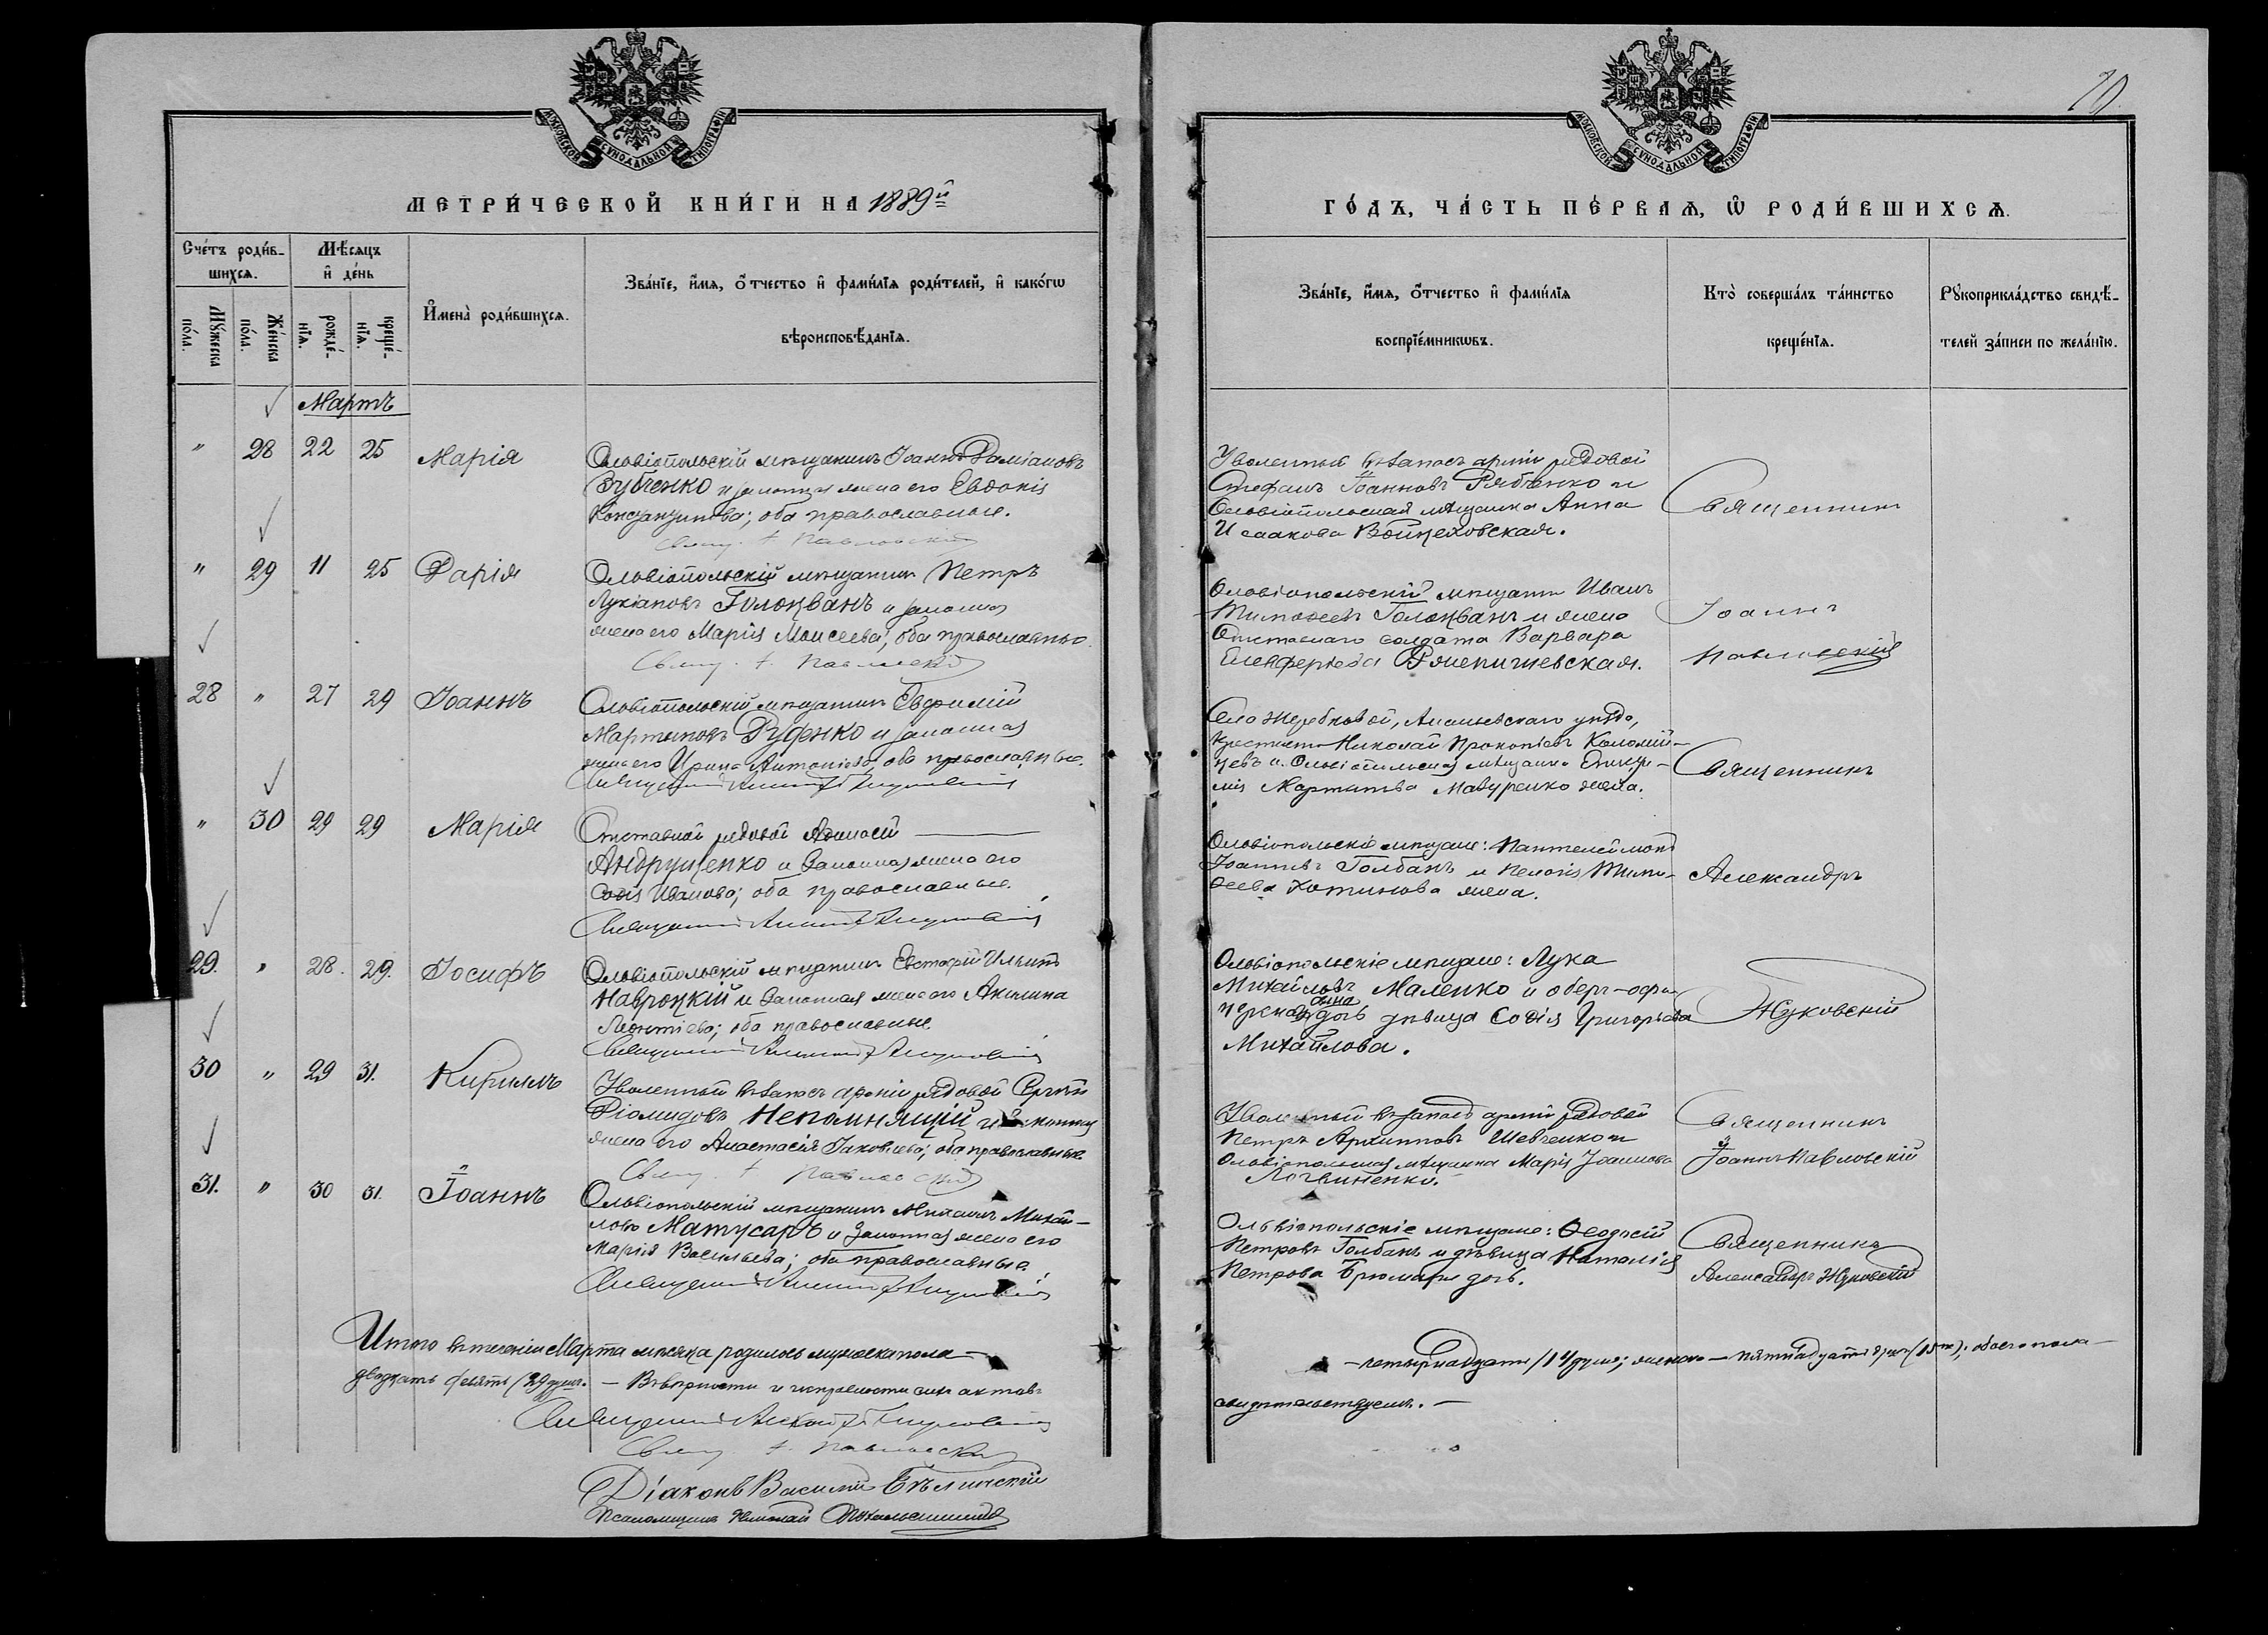 МОСКОВСКОЙ СѴНОДАЛЬНОЙ ТИПОГРАФІИ
МЕТРИ́ЧЕСКОЙ КНИ́ГИ НА 1889й
Сче́тъ роди́в-
шихсѧ.
Мѣ́сѧцъ
и҆ де́нь
Мꙋ́жеска
по́ла.
Же́нска
по́ла.
рожде́-
нїѧ.
креще́-
нїѧ.
И҆мена̀ роди́вшихсѧ.
Зва́нїе, и҆́мѧ, ѻ҆́тчество и҆ фами́лїѧ роди́телей, и҆ како́гѡ
вѣроисповѣ́данїѧ.
Мартъ
" 28 22 25 Марія
Ольвіопольскій мѣщанинъ Іоаннъ Даміановъ
Зубченко и законная жена его Евдокія
Константинова; оба православные.
Свящ. І. Павловскій
" 29 11 25 Дарія
Ольвіопольскій мѣщанинъ Петръ
Лукіановъ Голокванъ и законная
жена его Марія Моисеева; оба православные
Свящ. І. Павловскій
28 " 27 29 Іоаннъ
Ольвіопольскій мѣщанинъ Евфимій
Мартиновъ Руденко и законная
жена его Ирина Антоніева, оба православные.
Священникъ
" 30 29 29 Марія
Отставной рядовой Аѳанасій
Андрущенко и законная жена его
Софія Иванова; оба православные.
Священникъ
29. " 28. 29. Іосифъ
Ольвіопольскій мѣщанинъ Евстафій Ильинъ
Навроцкій и законная жена его Акилина
Леонтіева; оба православные
Священникъ
30 " 29 31. Кириллъ
Уволенный въ запасъ арміи рядовой Сергѣй
Діомидовъ Непомнящій и законная
жена его Анастасія Іаковлева; оба православные
Свящ. І. Павловскій
31. " 30 31. Іоаннъ
Ольвіопольскій мѣщанинъ Михаилъ Михай-
ловъ Матусаръ и законная жена его
Марія Васильева; оба православные.
Священникъ
Итого въ теченіи Марта мѣсяца родилось мужеска пола
двадцать девять (29 душъ. — Вѣрности и исправности сихъ актовъ
Священникъ
Свящ. І. Павловскій
Діаконъ Василій Бѣлинскій
Псаломщикъ Николай
МОСКОВСКОЙ СѴНОДАЛЬНОЙ ТИПОГРАФІИ
ГО́ДЪ, ЧА́СТЬ ПЕ́РВАѦ, Ѡ҆ РОДИ́ВШИХСѦ.
Зва́нїе, и҆́мѧ, ѻ҆́тчество и҆ фами́лїѧ
воспрїе́мникѡвъ.
Кто̀ соверша́лъ та́инство
креще́нїѧ.
Рꙋкоприкла́дство свидѣ́-
телей за́писи по жела́нїю.
Уволенный въ запасъ арміи рядовой
Стефанъ Іоанновъ Рябченко и
Ольвіопольская мѣщанка Анна
Исаакова Войцеховская.
Священникъ
Ольвіопольскій мѣщанинъ Иванъ
Тимоѳеевъ Голокванъ и жена
Отставнаго солдата Варвара
Елевферіева
Іоаннъ
Павловскій
Села Жеребковой, Ананьевскаго уѣзда,
крестьянинъ Николай Прокопіевъ Коломій-
цевъ и Ольвіопольская мѣщанка
Мартинова Мазуренко жена.
Священникъ
Ольвіопольскіе мѣщане: Пантелеймонъ
Іоанновъ Голбанъ и Пелагія Тимо-
ѳеева Хотинова жена.
Александръ
Ольвіопольскіе мѣщане: Лука
Михайловъ Маленко и оберъ-офи-
церская дочь дѣвица Софія Григорьева
Михайлова.
Жуковскій
Уволенный въ запасъ арміи рядовой
Петръ Архипповъ Шевченко и
Ольвіопольская мѣщанка Марія Іоаннова
Логвиненко.
Священникъ
Іоаннъ Павловскій
Ольвіопольскіе мѣщане: Ѳеодосій
Петровъ Голбанъ и дѣвица Наталія
Петрова дочь.
Священникъ
Александръ Жуковскій
— четырнадцать (14 душъ; женска — пятнадцать душъ (15ть); обоего пола —
свидѣтельствуемъ. —